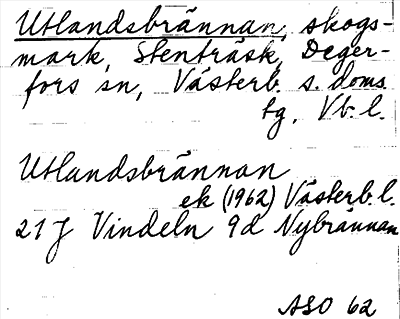 Utlandsbrännan, skogs-
mark, Stenträsk, Deger-
fors sn, Västerb. s. doms.
tg, Vb. l.
Utlandsbrännan
ek (1962) Västerb. l.
21 J Vindeln 9d Nybrännan
ASO 62